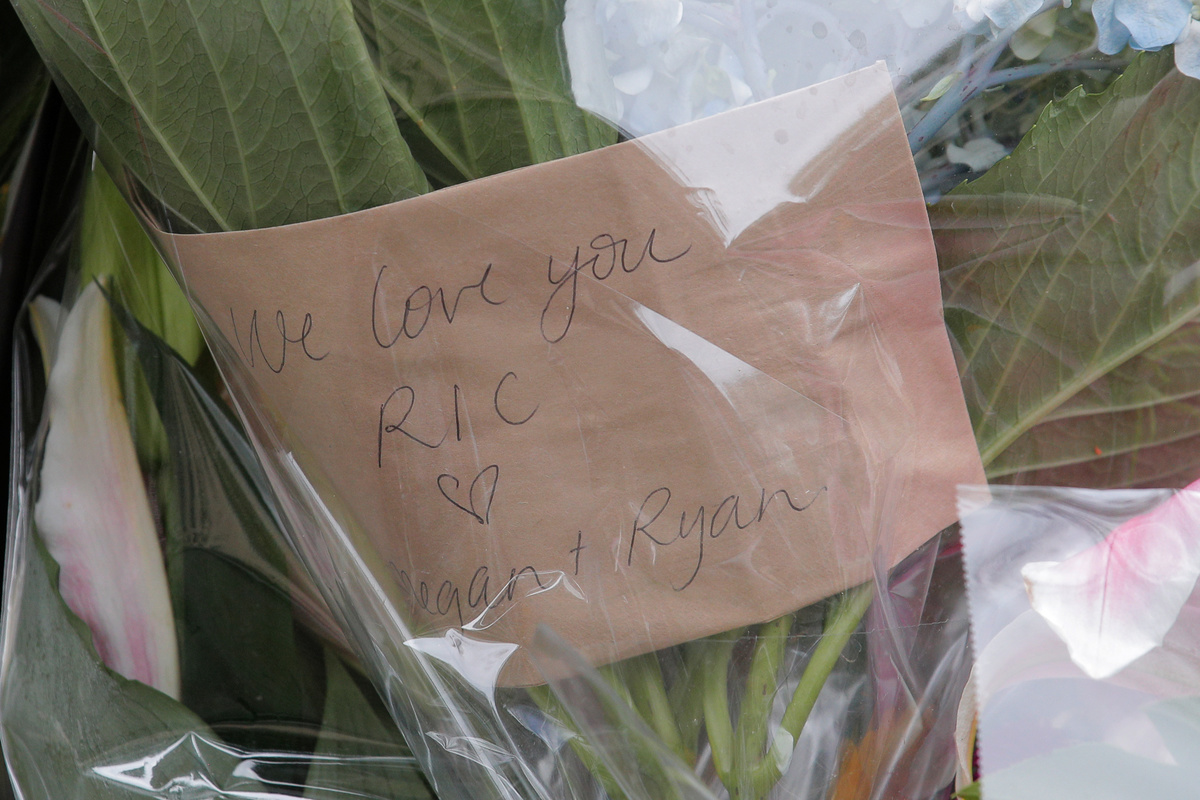 We love you
RIC
♡
egan + Ryan